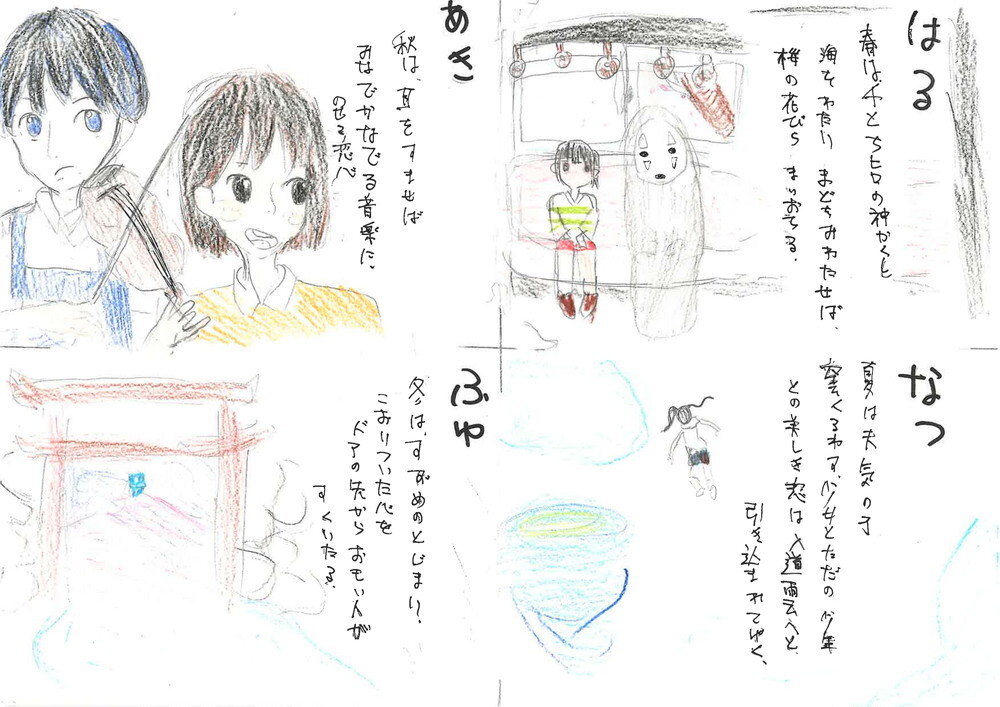 はる
春は、千と千ヒロの神かくし
海をわたい まどをみわたせば、
桜の花びら まいおちる.
なつ
夏は天気の子
との美しき恋は入道雲へと
引き込まれてゆく、
あき
秋は、耳をすませば
みなでかなでる音楽に、
のせる恋心
ふゆ
冬は、すずめのとじまり.
こおりついた心を
ドアの先からおもい人が
すくいたる.